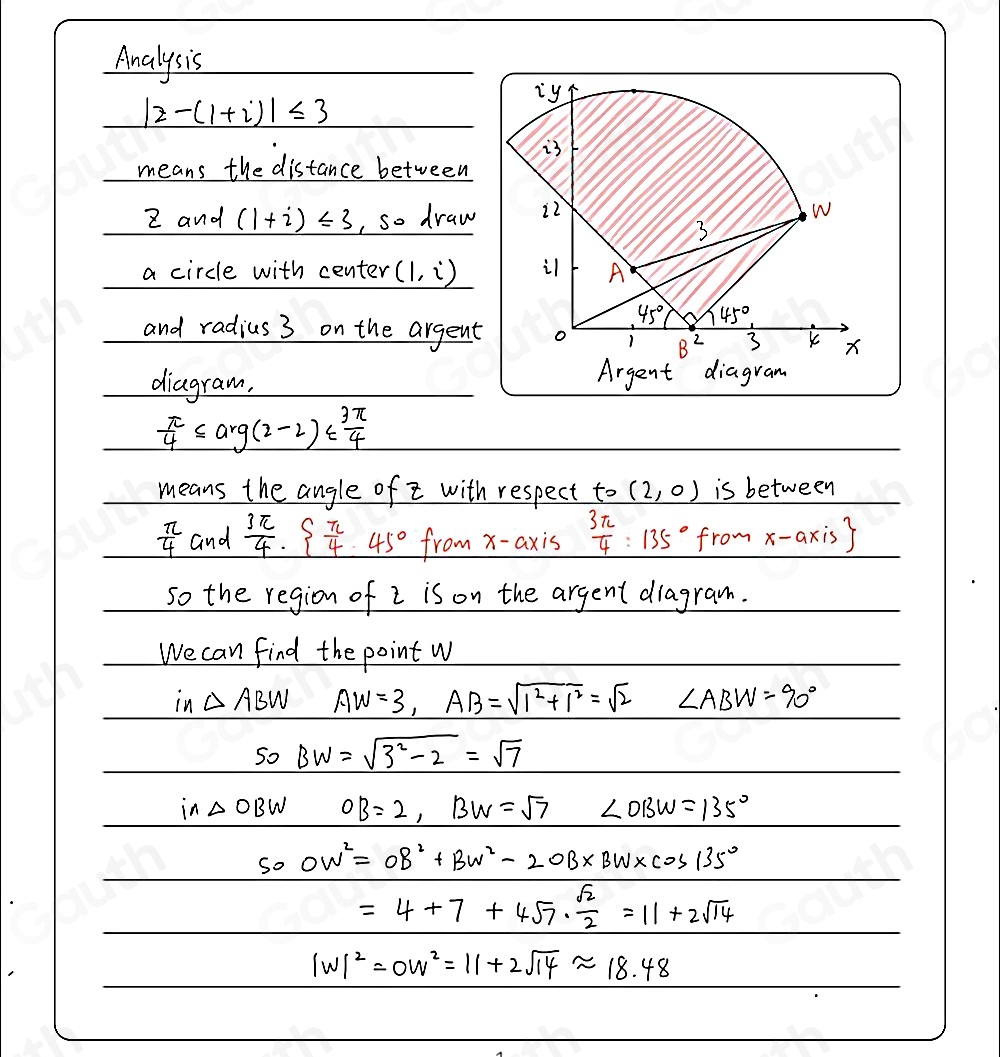 Analysis
|z-(1+i)| ≤ 3
means the distance between
z and (1+i) ≤ 3, so draw
a circle with center (1, i)
and radius 3 on the argent
diagram.
iy
i3
i2
i1
A
3
W
45°
45°
0
1
B
2
3
4
x
Argent diagram
π/4 ≤ arg(z-2) ≤ 3π/4
means the angle of z with respect to (2, 0) is between
π/4 and 3π/4. {π/4: 45° from x-axis 3π/4: 135° from x-axis}
so the region of z is on the argent diagram.
We can find the point W
in △ ABW AW=3, AB=√(1²+1²)=√2 ∠ABW=90°
so BW=√(3²-2)=√7
in △ OBW OB=2, BW=√7 ∠OBW=135°
so OW²= OB²+BW²-2OB×BW×cos135°
= 4+7+4√7·√2/2 =11+2√14
|W|²=OW²=11+2√14 ≈ 18.48
Gauth